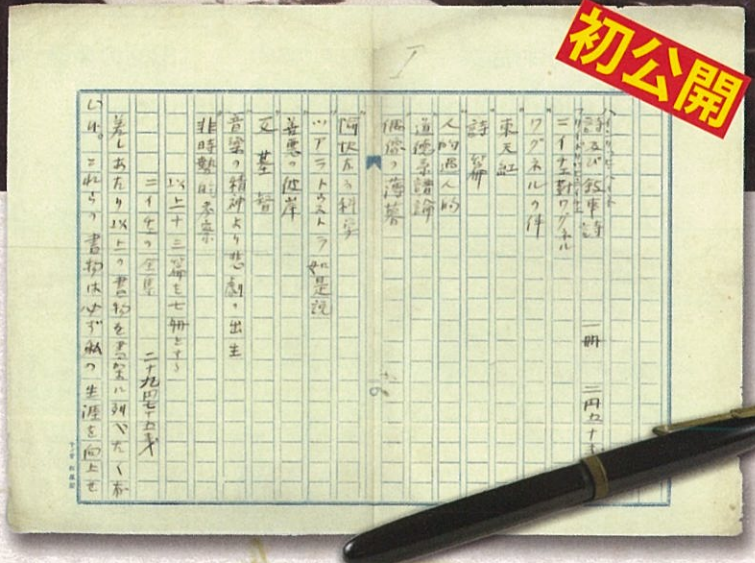 初公開
I
詩及び叙事詩 一冊 二円九十
ニイチエ対ワグネル
ワグネルの件
東天紅
詩篇
人的過人的
道徳系譜論
偶像の薄暮
愉快なる科学
ツアラトゥストラ如是説
善悪の彼岸
反基督
音楽の精神より悲劇の出生
非時勢的考察
以上十三篇を七冊とする
ニイチエの全集 二十九円七十五銭
差しあたり以上の書物を書架に列べたく存
じ候。これらの書物は必ず私の生涯を向上せ